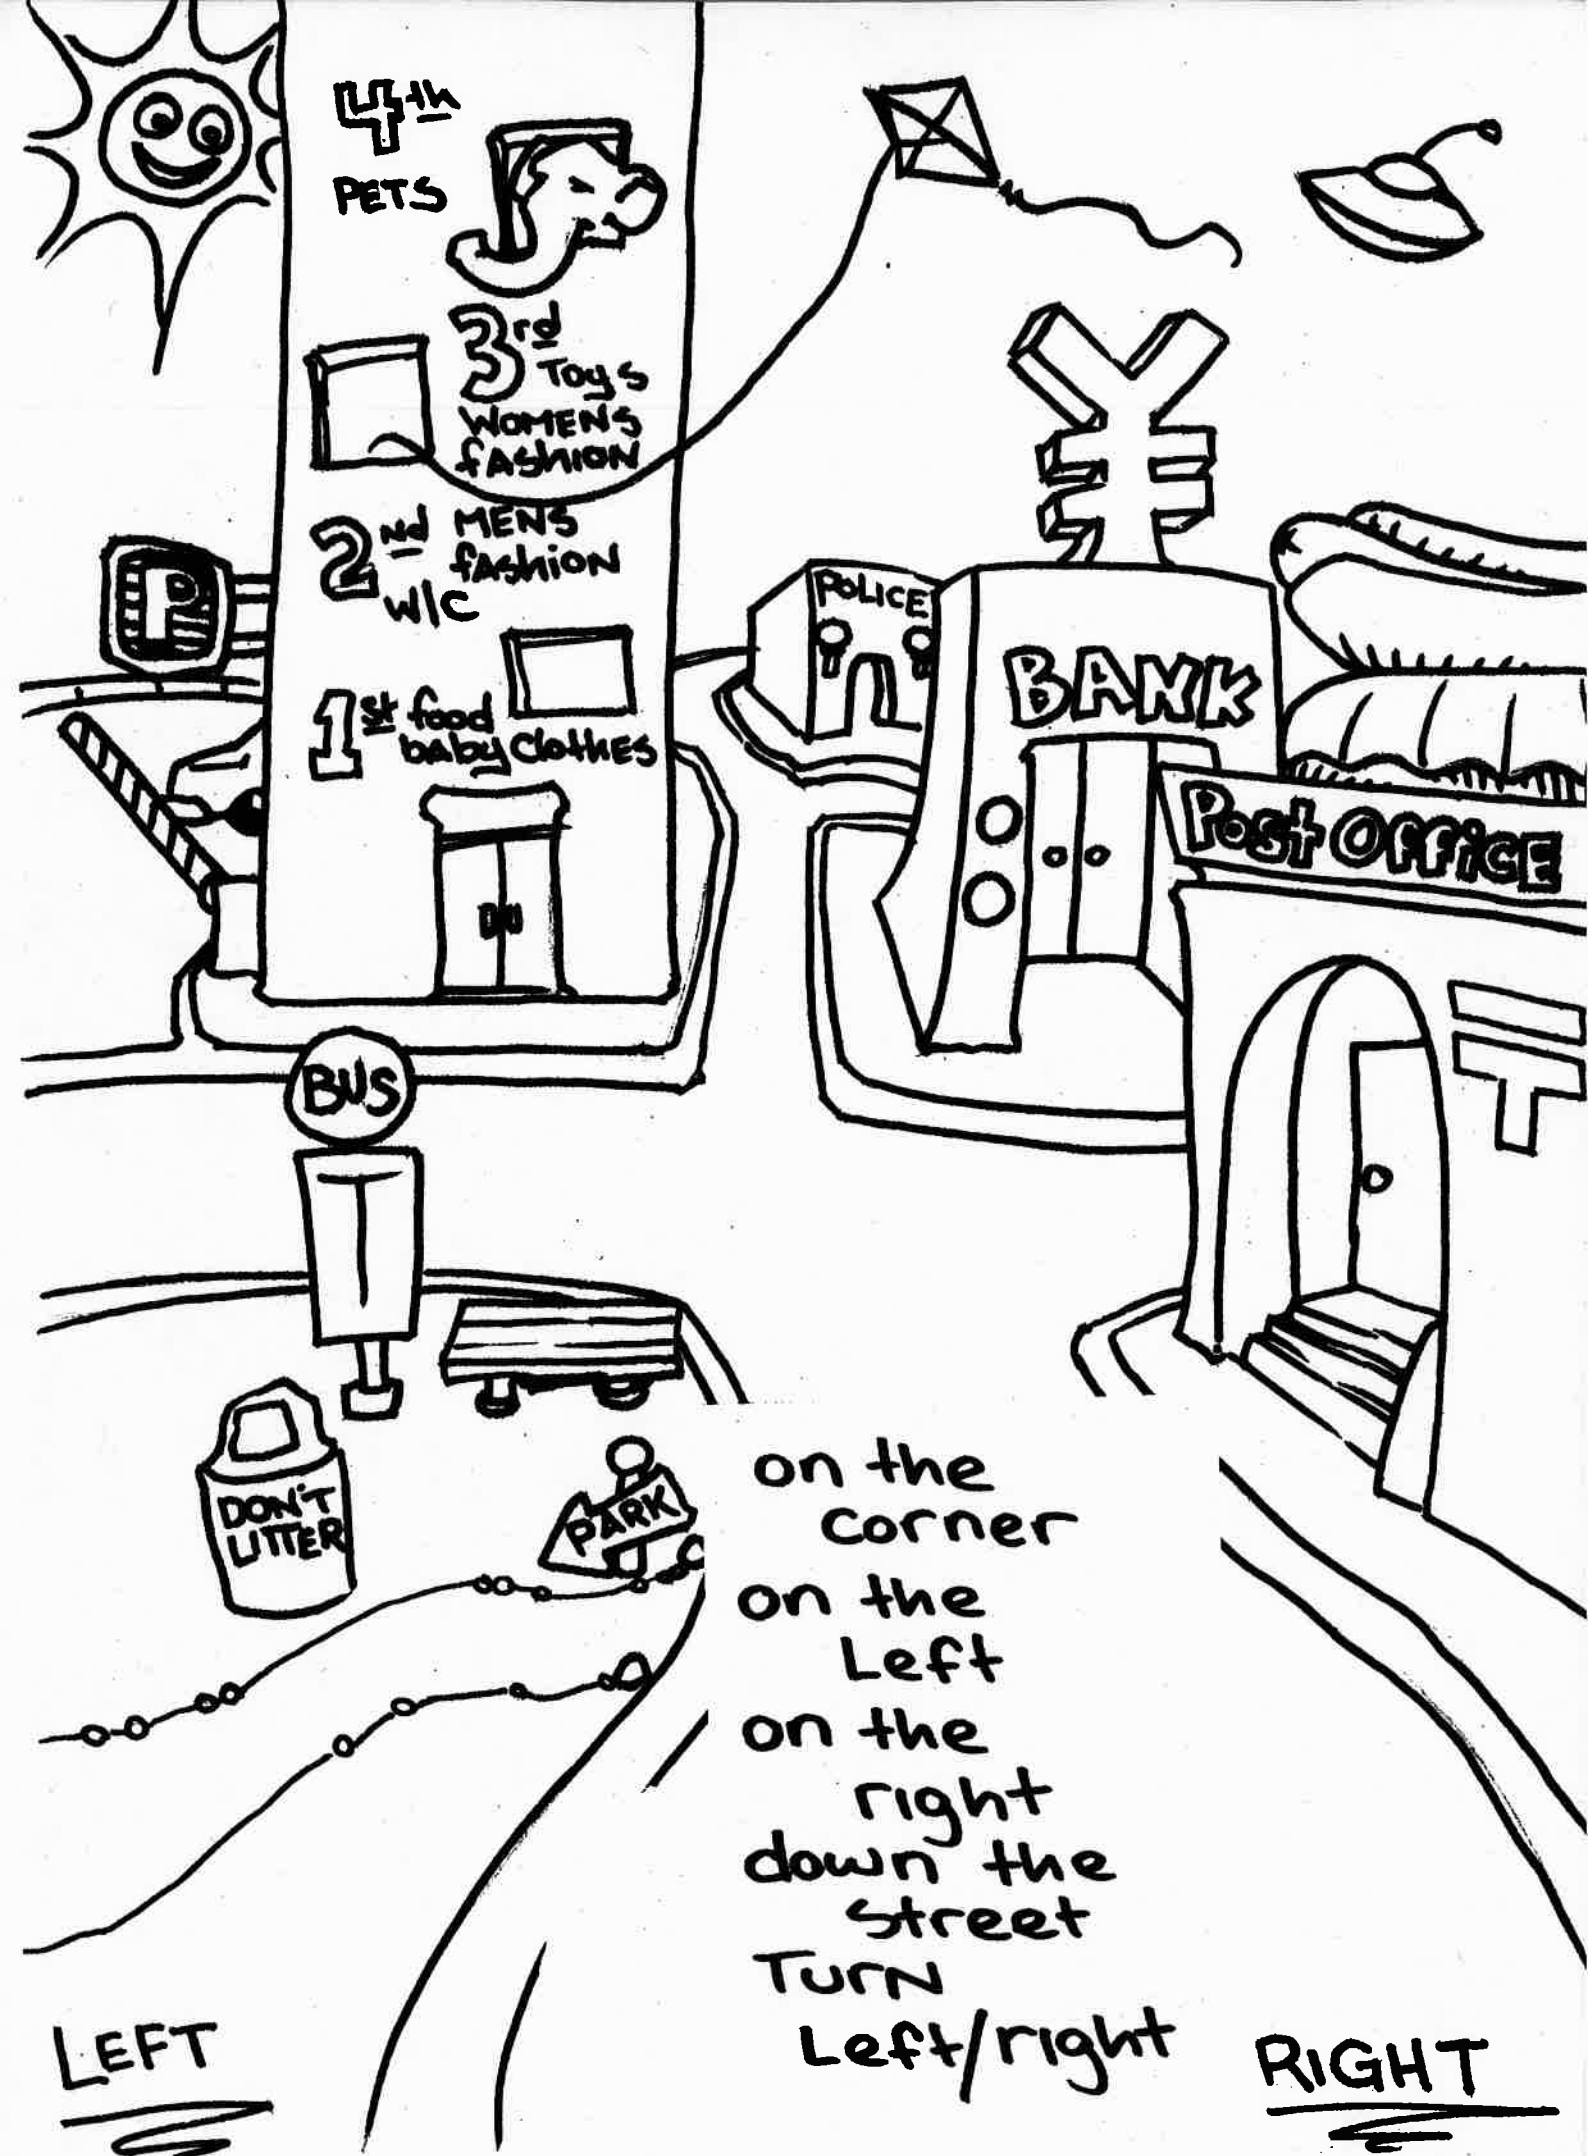 4th
PETS
3rd
Toys
WOMENS
fAShiON
2Nd MENS
fAShiON
W/C
1st food
baby ClothES
P
POLICE
¥
BANK
PostOffiCE
〒
BUS
DON'T
LITTER
PARK
on the
corner
on the
Left
on the
right
down the
street
TurN
Left/right
LEFT
RIGHT